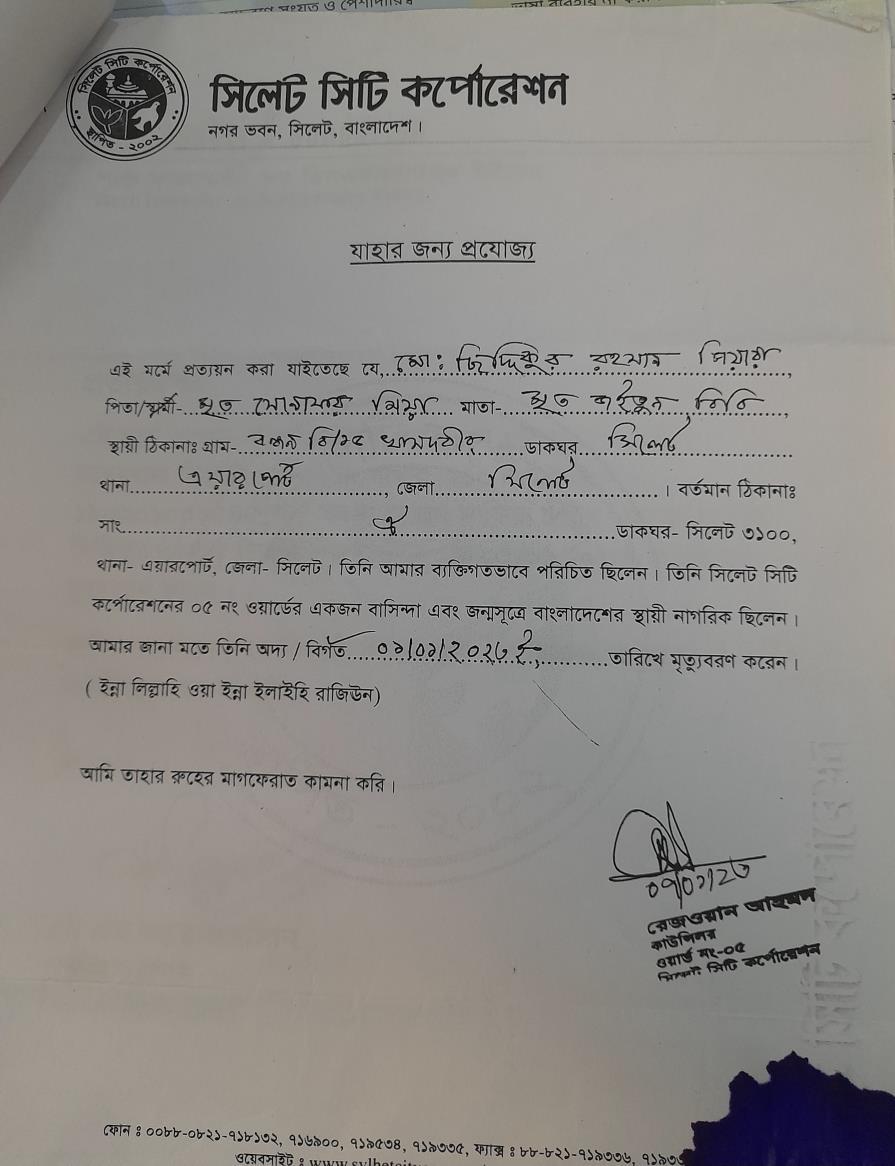 সিলেট সিটি কর্পোরেশন
স্থাপিত - ২০০২
সিলেট সিটি কর্পোরেশন
নগর ভবন, সিলেট, বাংলাদেশ।
যাহার জন্য প্রযোজ্য
এই মর্মে প্রত্যয়ন করা যাইতেছে যে, মো: ছিদ্দিকুর রহমান
পিতা/স্বামী- মৃত মিয়া মাতা- মৃত বিবি,
স্থায়ী ঠিকানাঃ গ্রাম- খাসদবীর ডাকঘর সিলেট
থানা এয়ারপোর্ট, জেলা সিলেট। বর্তমান ঠিকানাঃ
সাং ঐ ডাকঘর- সিলেট ৩১০০,
থানা- এয়ারপোর্ট, জেলা- সিলেট। তিনি আমার ব্যক্তিগতভাবে পরিচিত ছিলেন। তিনি সিলেট সিটি
কর্পোরেশনের ০৫ নং ওয়ার্ডের একজন বাসিন্দা এবং জন্মসূত্রে বাংলাদেশের স্থায়ী নাগরিক ছিলেন।
আমার জানা মতে তিনি অদ্য / বিগত তারিখে মৃত্যুবরণ করেন।
( ইন্না লিল্লাহি ওয়া ইন্না ইলাইহি রাজিউন)
আমি তাহার রুহের মাগফেরাত কামনা করি।
রেজওয়ান আহমদ
কাউন্সিলর
ওয়ার্ড নং-০৫
সিলেট সিটি কর্পোরেশন
ফোন : ০০৮৮-০৮২১-৭১৮১৩২, ৭১৬৯০০, ৭১৯৫৩৪, ৭১৯৩৩৫, ফ্যাক্স : ৮৮-৮২১-৭১৯৩৩৬,
ওয়েবসাইট :